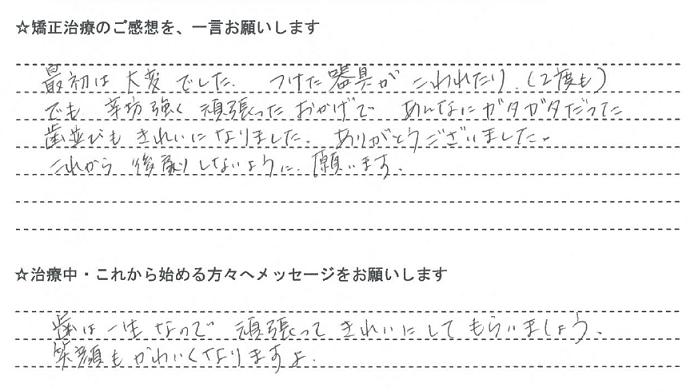 ☆矯正治療のご感想を、一言お願いします
最初は大変でした。つけた器具がこわれたり（2度も）
でも辛抱強く頑張ったおかげで あんなにガタガタだった
歯並びもきれいになりました。ありがとうございました。
これから後戻りしないように願います。
☆治療中・これから始める方々へメッセージをお願いします
歯は一生なので頑張ってきれいにしてもらいましょう。
笑顔もかわいくなりますよ。